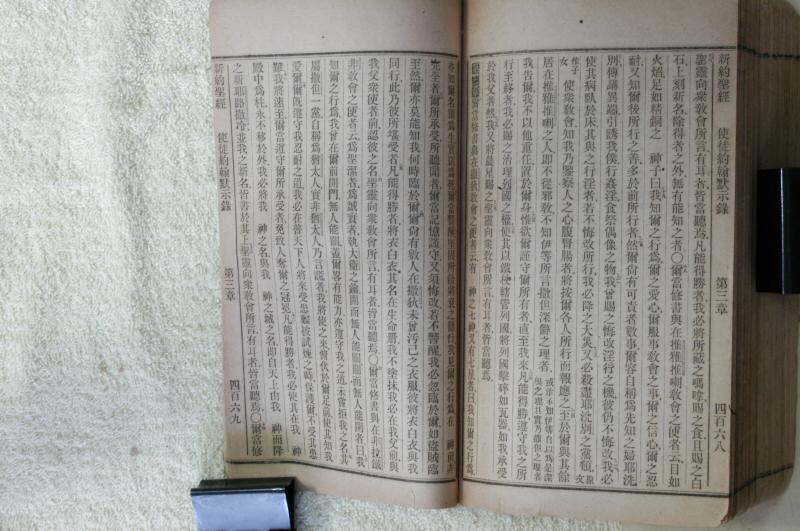 新約聖經 使徒約翰默示錄 第三章 四百六八
聖靈向衆敎會所言有耳者皆當聽焉凡能得勝者我必將所藏之嗎嗱賜之食且賜之白
石上刻新名除得者之外無有能知之者〇爾當修書與在推雅推喇敎會之使者云目如
火焰足如精銅之 神子曰我知爾之行爲爾之愛心爾服事敎會之事爾之信心爾之忍
耐又知爾後所行之善多於前所行者然爾尚有可責者數事爾容自稱爲先知之婦耶洗
別傳講異端引誘我僕行姦淫食祭偶像之物我曾賜之悔改淫行之機彼仍不悔改我必
使其病臥於床其與之行淫者若不悔改所行我必降之大災又必殺滅耶洗別之黨類
使衆敎會知我乃鑒察人之心腹腎腸者將按爾各人所行而報應之至於爾與其餘
居在推雅推喇之人即不從邪敎不知伊等所言撒但深僻之理者
我告爾我不以他重任置於爾身惟欲爾謹守爾所有者直至我來凡能得勝遵守我之所
行至終者我必賜之治理列國之權使其以鐵杖轄管列國將列國擊碎如瓦器如我承受
於我父者然我又將晨星賜之聖靈向衆敎會所言有耳者皆當聽焉
爾當修書與在撒狄敎會之使者云有 神之七神又有七星者曰我知爾之行爲
完全者爾所承受所聽聞者爾當記憶謹守又須悔改若不警醒我必忽臨於爾如盜賊臨
至然爾亦莫能知我何時臨於爾爾尚有數人在撒狄未曾汚己之衣服彼將衣白衣與我
同行此乃彼所堪受者凡能得勝者將衣白衣其名在生命册我不塗抹我必在我父前與
我父衆使者前認彼之名聖靈向衆敎會所言有耳者皆當聽焉〇爾當修書與在非拉鐵
非敎會之使者云爲聖潔者爲誠實者執大衛之鑰開而無人能闔闔而無人能開者曰我
知爾之行爲我曾在爾前開門無人能闔蓋爾畧有能力亦遵守我之道未嘗拒我之名其
屬撒但一黨自稱爲猶太人實非猶太人乃言謊者我將使之來俯伏於爾足前使其知我
愛爾爾旣遵守我忍耐之道我必在普天下人將來受患難被試煉之時保護爾不受其患
難我將速至爾當遵守爾所承受者免致人奪爾之冠冕凡能得勝者我必使其在我 神
殿中爲柱永不移於外我必將我 神之名與我 神之城之名即自天上由我 神而降
之新耶路撒冷並我之新名皆書於其上聖靈向衆敎會所言有耳者皆當聽焉〇爾當修
新約聖經 使徒約翰默示錄 第三章 四百六九